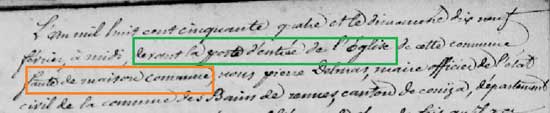 L'an mil huit cent cinquante quatre et le dimanche dix neuf
février, à midi, devant la porte d'entrée de l'Église de cette commune
faute de maison comune, nous pierre Delmas, maire officier de l'état
civil de la commune des Bains de rennes, canton de couiza, département